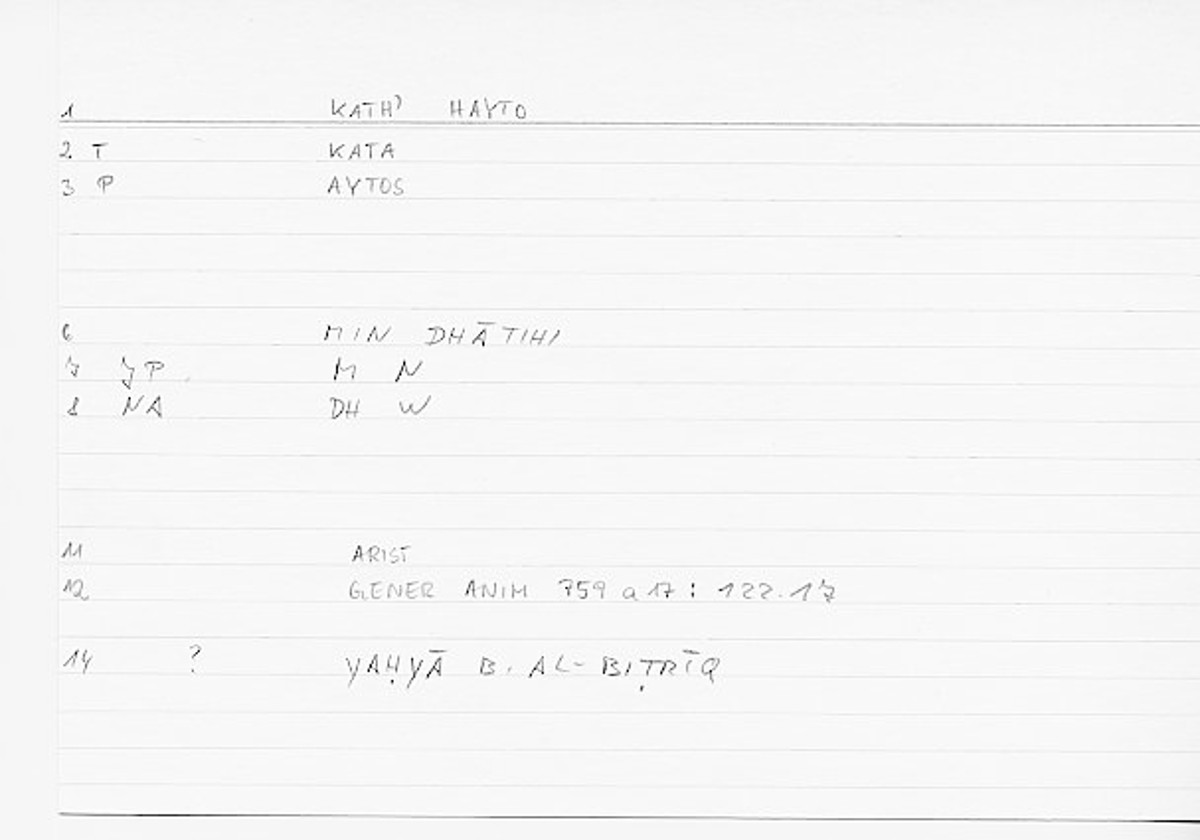 1 KATH' HAYTO
2 T KATA
3 P AYTOS
6 MIN DHĀTIHI
7 JP M N
8 NA DH W
11 ARIST
12 GENER ANIM 759 a 17 : 122.17
14 ? YAḤYĀ B. AL-BIṬRĪQ